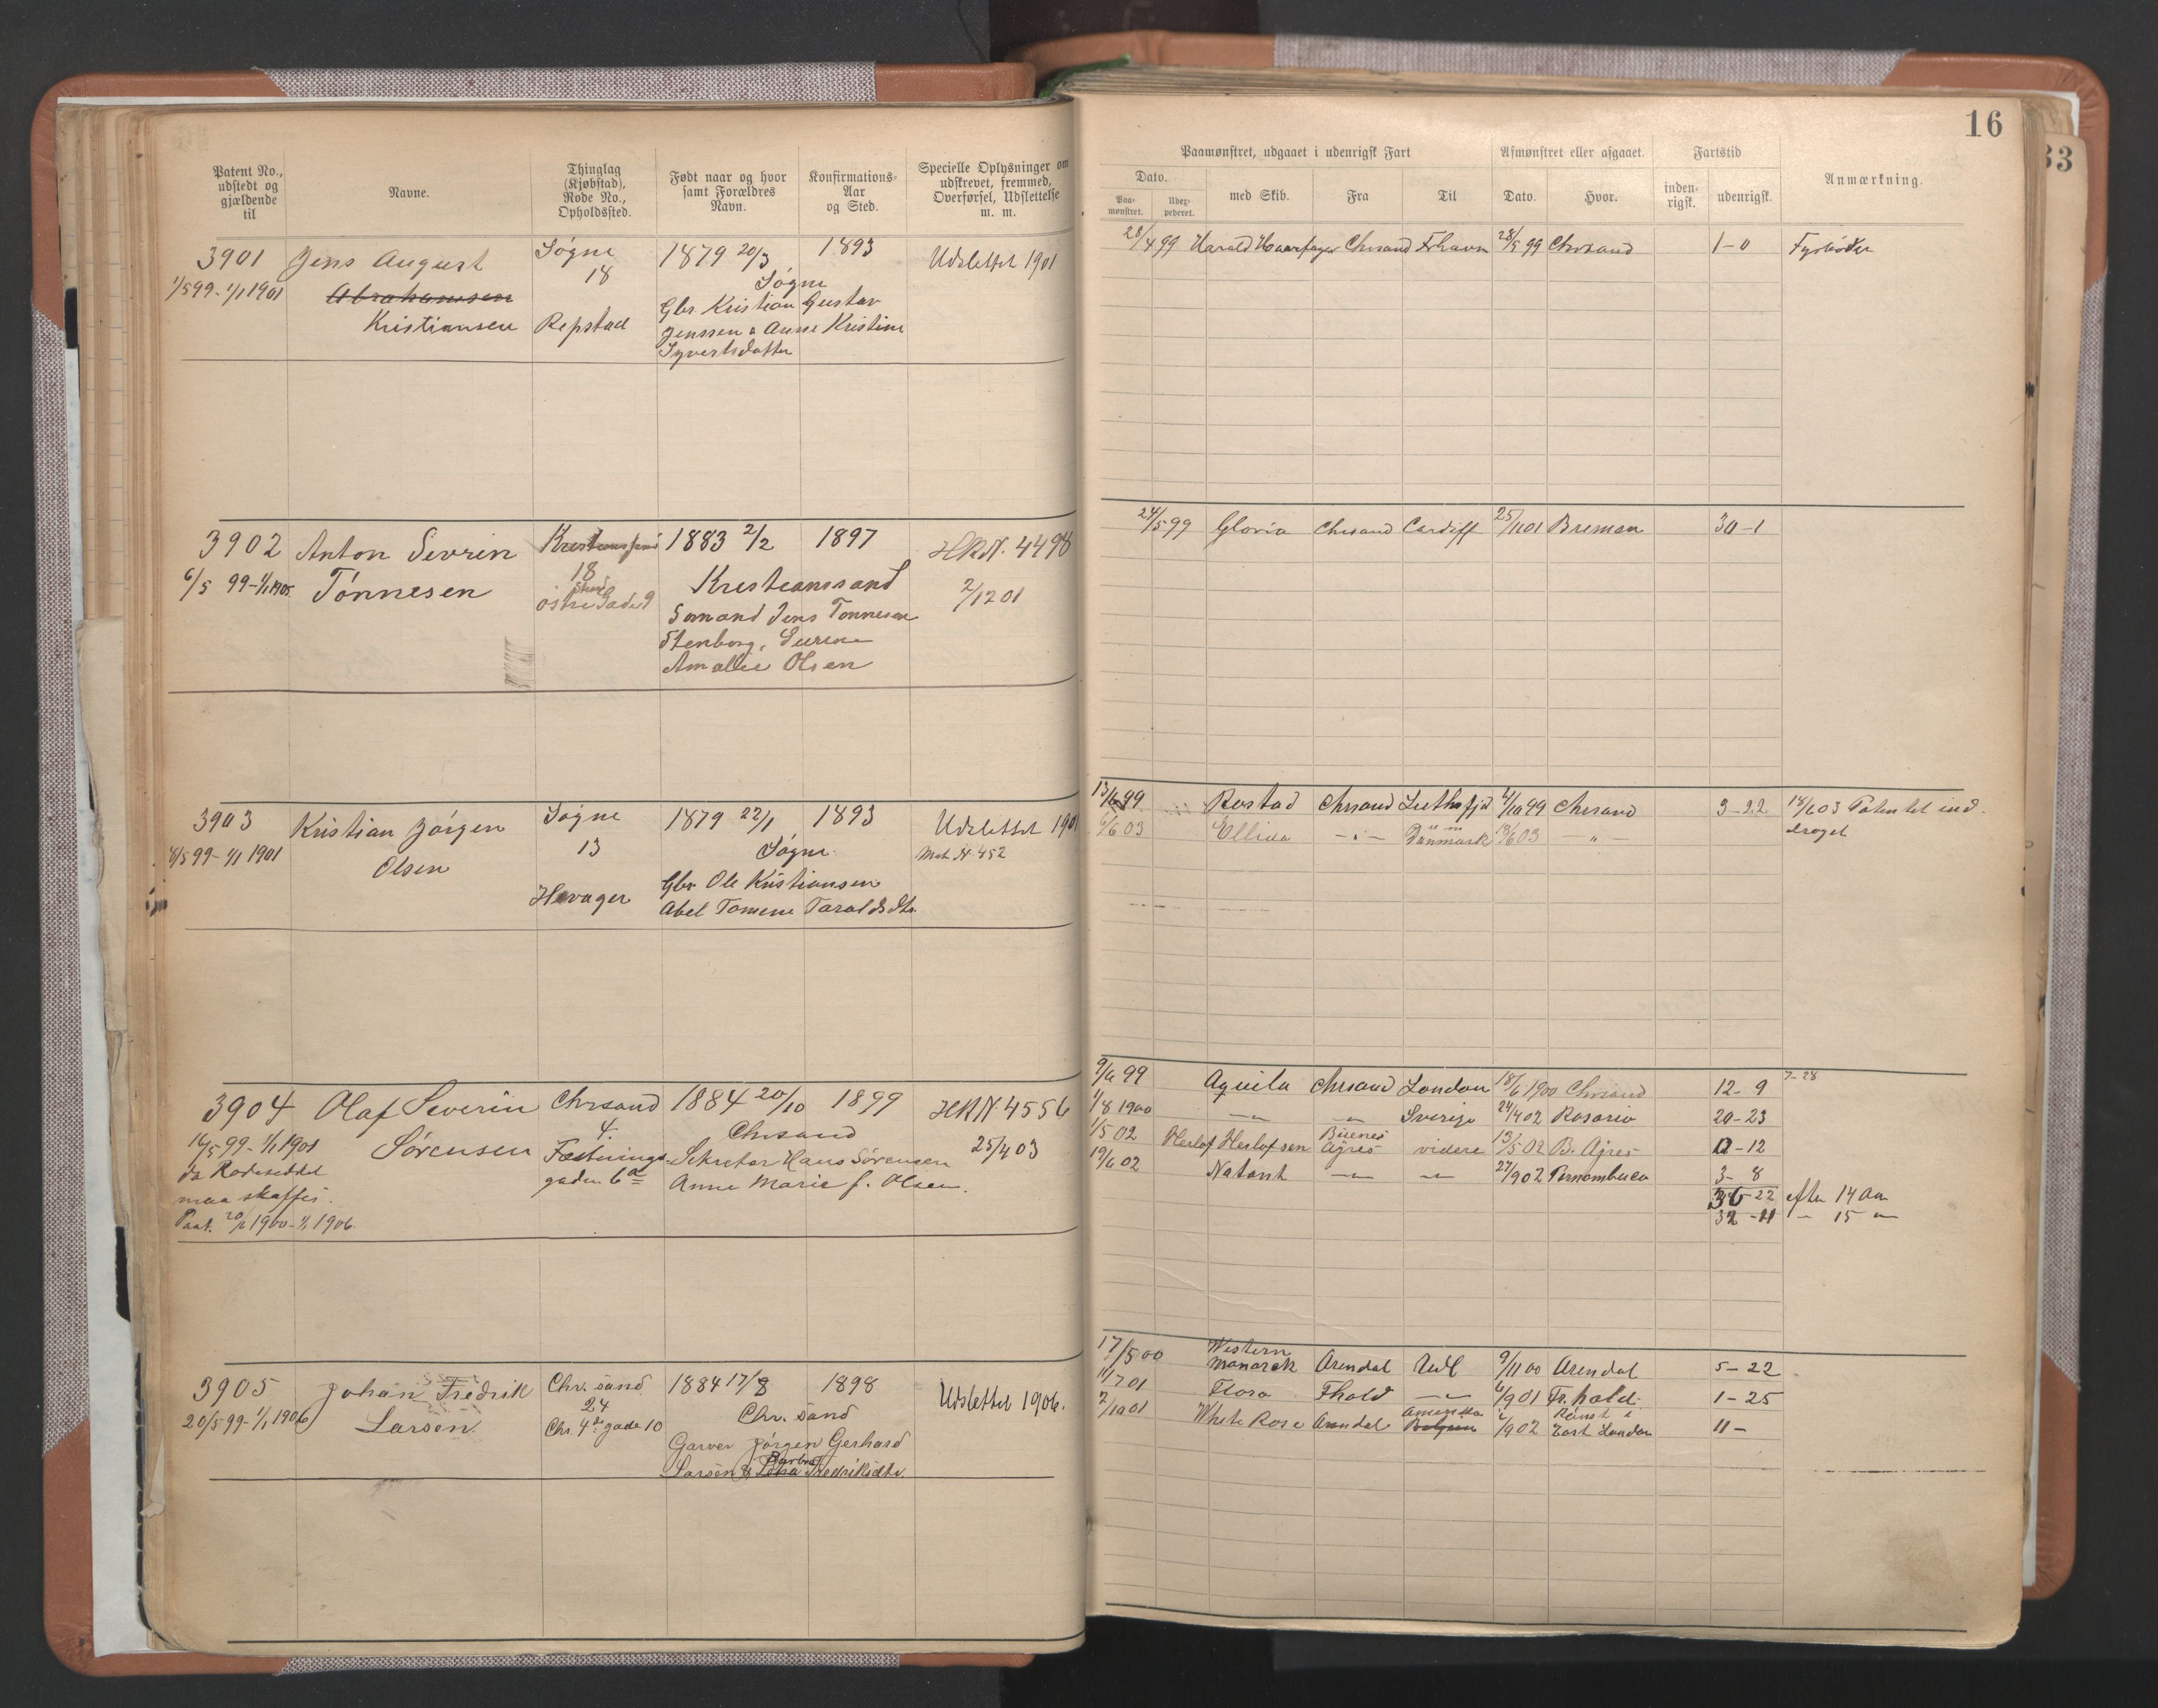 Patent No., udstedt og gjældende til
Navne.
Thinglag (Kjøbstad), Rode No., Opholdssted.
Født naar og hvor samt Forældres Navn.
Konfirmations-Aar og Sted.
Specielle Oplysninger om udskrevet, fremmed, Overførsel, Udslettelse m. m.
3901 Jens August Søgne 1879 20/3 1893 Udslettet 1901
1/5 99 - 1/1 1901 Abrahamsen 18 Søgne
Kristiansen Repstad Gbr. Kristian Gustav
Jenssen & Anne Kristine
Syvertsdatter
3902 Anton Sevrin Kristianssand 1883 2/2 1897 HRN. 4498
6/5 99 - 1/1 1905 Tønnesen 18 Kristianssand 2/12 01
østre Strand Gade 9 Sømand Jens Tønnesen
Stenborg, Severine
Amallie Olsen
3903 Kristian Jørgen Søgne 1879 22/1 1893 Udslettet 1901
8/5 99 - 1/1 1901 Olsen 13 Søgne
Høvager Gbr. Ole Kristiansen
Abel Tomine Taraldsdtr.
3904 Olaf Severin Chrsand 1884 20/10 1899 HRN 4556
16/5 99 - 1/1 1901 Sørensen 4. Chrsand 25/4 03
da Rodeseddel Fæstnings- Sekretær Hans Sørensen
maa skaffes. gaden 6a Anne Marie f. Olsen.
Pat. 20/6 1900 - 1/1 1906.
3905 Johan Fredrik Chr. sand 1884 17/8 1898 Udslettet 1906.
20/5 99 - 1/1 1906 Larsen 24 Chr. sand
Chr. 4de gade 10 Garver Jørgen Gerhard
Larsen & Barbra Fredriksdtr.
16
Paamønstret, udgaaet i udenrigsk Fart
Afmønstret eller afgaaet.
Fartstid
Anmærkning.
Dato.
Paa-mønstret.
Udex-pederet.
med Skib.
Fra
Til
Dato.
Hvor.
inden-rigsk.
udenrigsk.
28/4 99 Harald Haarfager Chrsand Frhavn 28/5 99 Chrsand 1 - 0 Fyrbøder
24/5 99 Gloria Chrsand Cardiff 25/11 01 Bremen 30 - 1
13/6 99 Rostad Chrsand 4/10 99 Chrsand 3 - 22 18/6 03 Patentet ind-
6/6 03 Ellida - " - Danmark 18/6 03 - " - draget
9/6 99 Aquila Chrsand London 18/6 1900 Chrsand 12 - 9 7-28
1/8 1900 - " - - " - Sverige 24/4 02 Rosario 20 - 23
1/5 02 Herlof Herlofsen Buenos Ayres videre 13/5 02 B. Ajres 0 - 12
19/6 02 Natant - " - - " - 27/9 02 Pernambuco 3 - 8
36 - 22 efter 14 Aar
- " - 15 "
17/5 00 Western Monarck Arendal Udl 9/11 00 Arendal 5 - 22
11/7 01 Flora Fhald - " - 6/9 01 Fr.hald. 1 - 25
2/10 01 White Rose Arendal Belgien Amerika /9 02 Rømt i East London 11 -